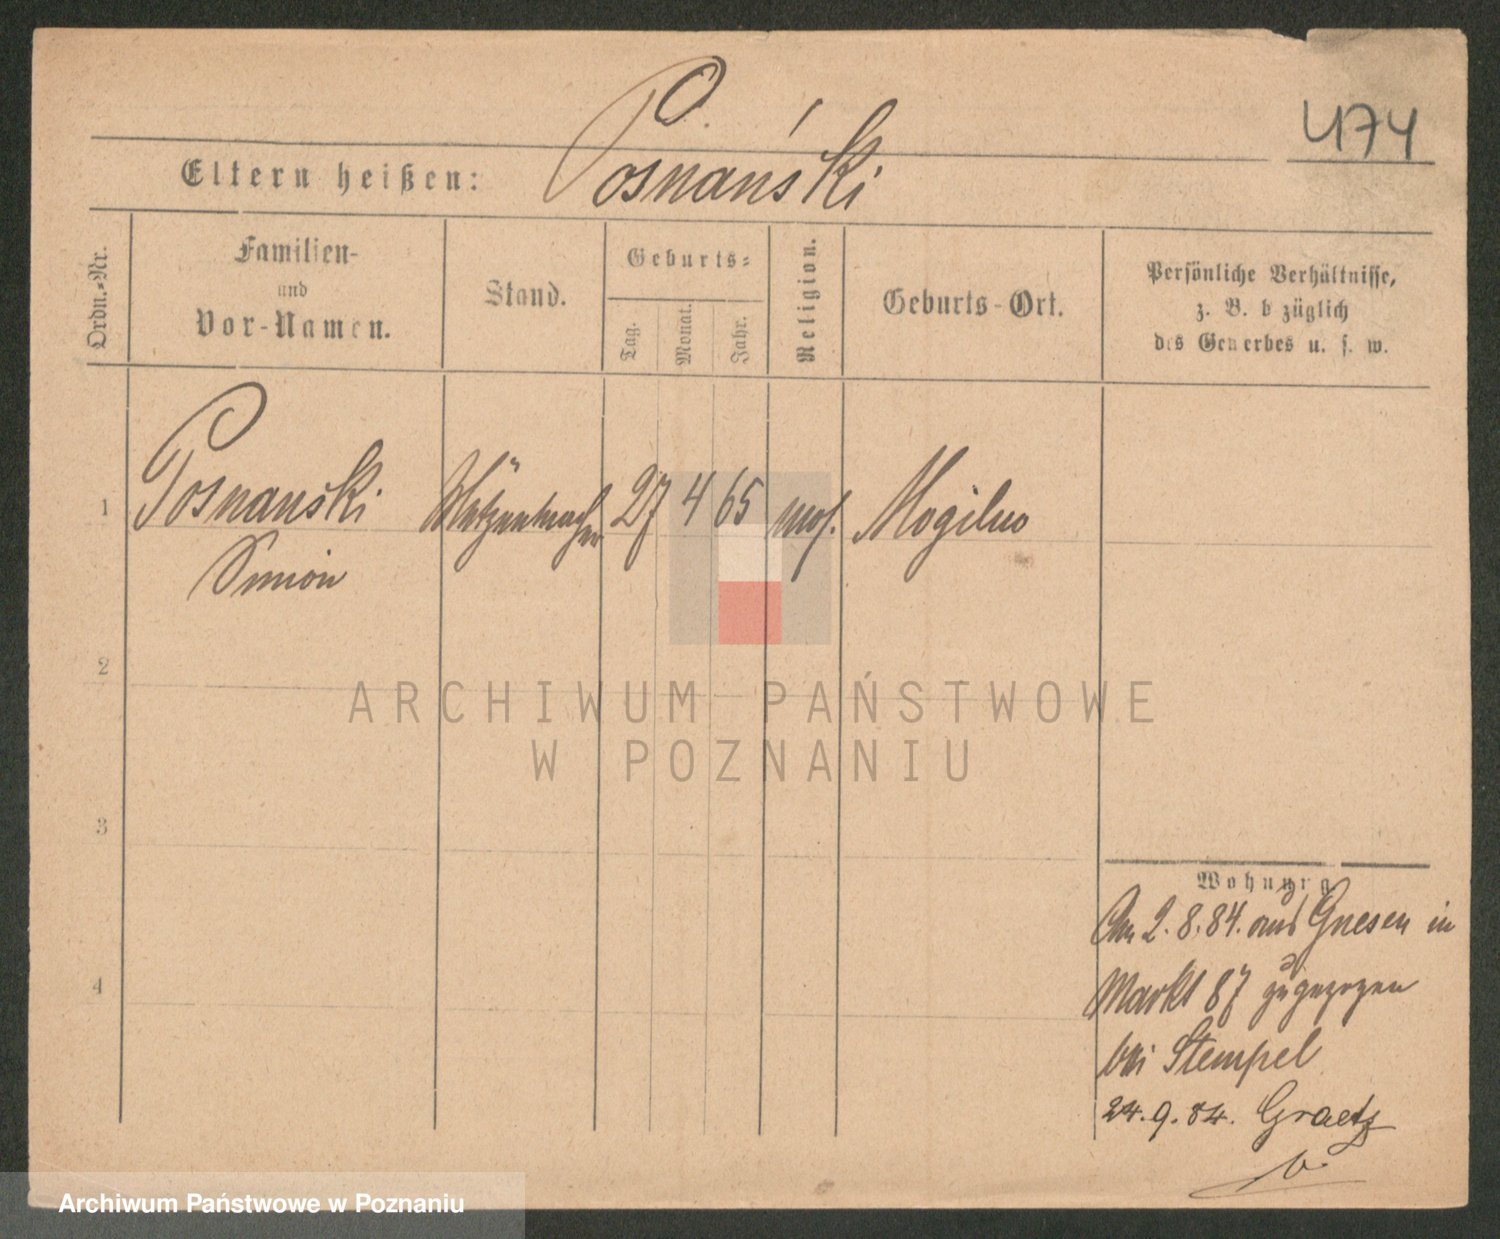 474
Eltern heißen: Posnański
Ordn.-Nr.
Familien-
und
Vor-Namen.
Stand.
Geburts-
Tag.
Monat.
Jahr.
Religion.
Geburts-Ort.
Persönliche Verhältnisse,
z. B. b züglich
des Gewerbes u. s. w.
1 Posnanski Mützenmacher 27 4 65 mos. Mogilno
Simon
2
3
4
ARCHIWUM PAŃSTWOWE
W POZNANIU
Wohnung.
Am 2.8.84. aus Gnesen in
Markt 87 zugezogen
bei Stempel
24.9.84. Graetz
Archiwum Państwowe w Poznaniu